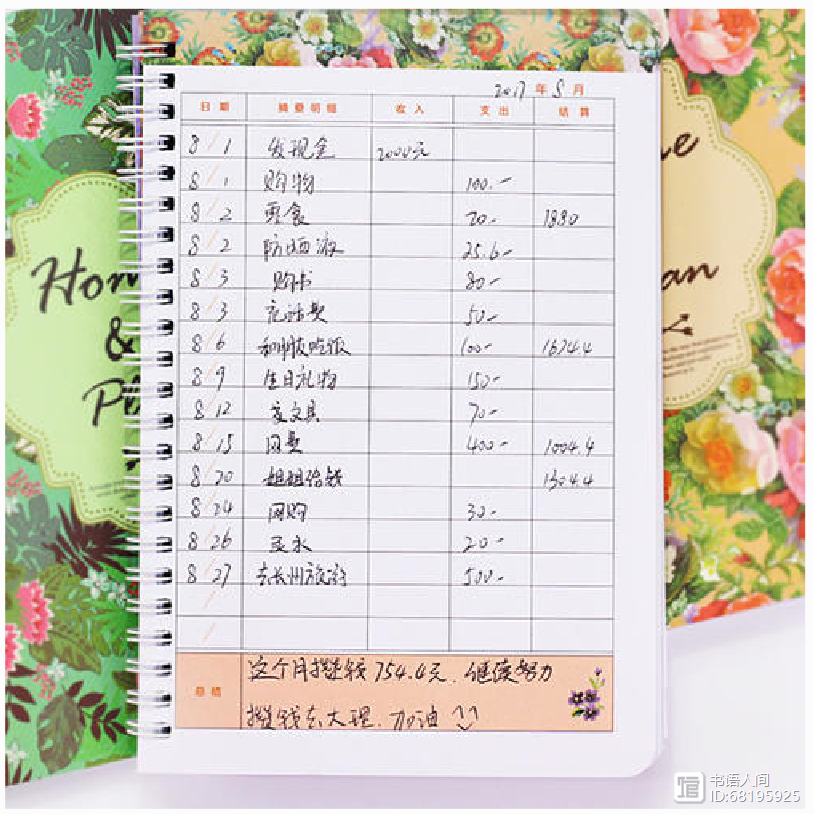 2017 年 8 月
日期 摘要明细 收入 支出 结算
8/1 发现金 2000元
8/1 购物 100.-
8/2 零食 20.- 1880
8/2 防晒液 25.6-
8/3 购书 80-
8/3 充话费 50-
8/6 和朋友吃饭 100- 1624.4
8/9 生日礼物 150-
8/12 买文具 70-
8/15 网费 400- 1004.4
8/20 姐姐给钱 1304.4
8/24 网购 30-
8/26 买水 20-
8/27 去杭州旅游 500-
总结 这个月攒钱 754.4元，继续努力
攒钱去大理，加油
Hom
&
书语人间
ID:68195925